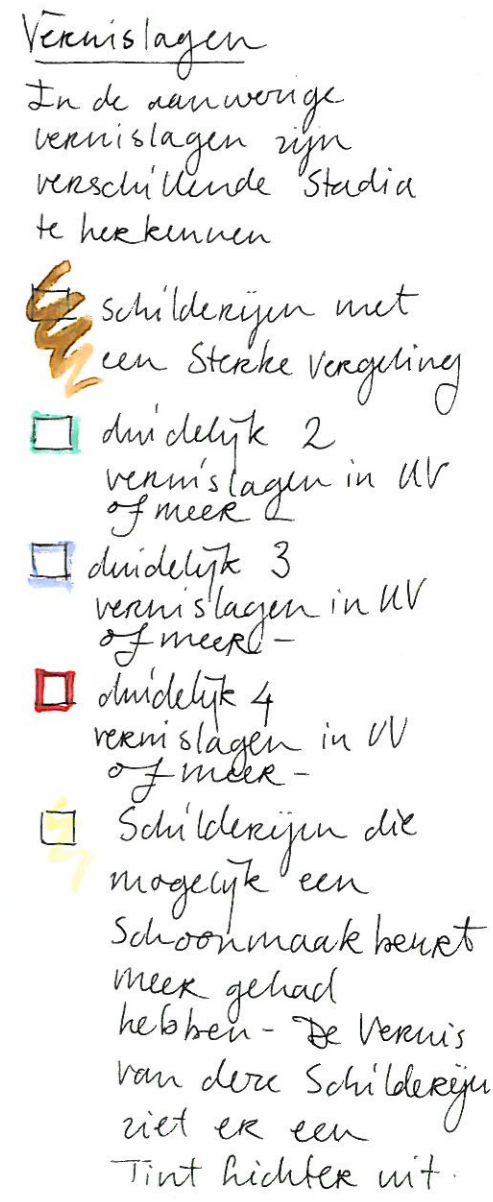 Vernislagen
In de aanwezige
vernislagen zijn
verschillende Stadia
te herkennen
schilderijen met
een Sterke Vergeling
duidelijk 2
vernislagen in UV
of meer -
duidelijk 3
vernislagen in UV
of meer -
duidelijk 4
vernislagen in UV
of meer -
Schilderijen die
mogelijk een
Schoonmaakbeurt
meer gehad
hebben - De Vernis
van deze Schilderijen
ziet er een
Tint lichter uit.